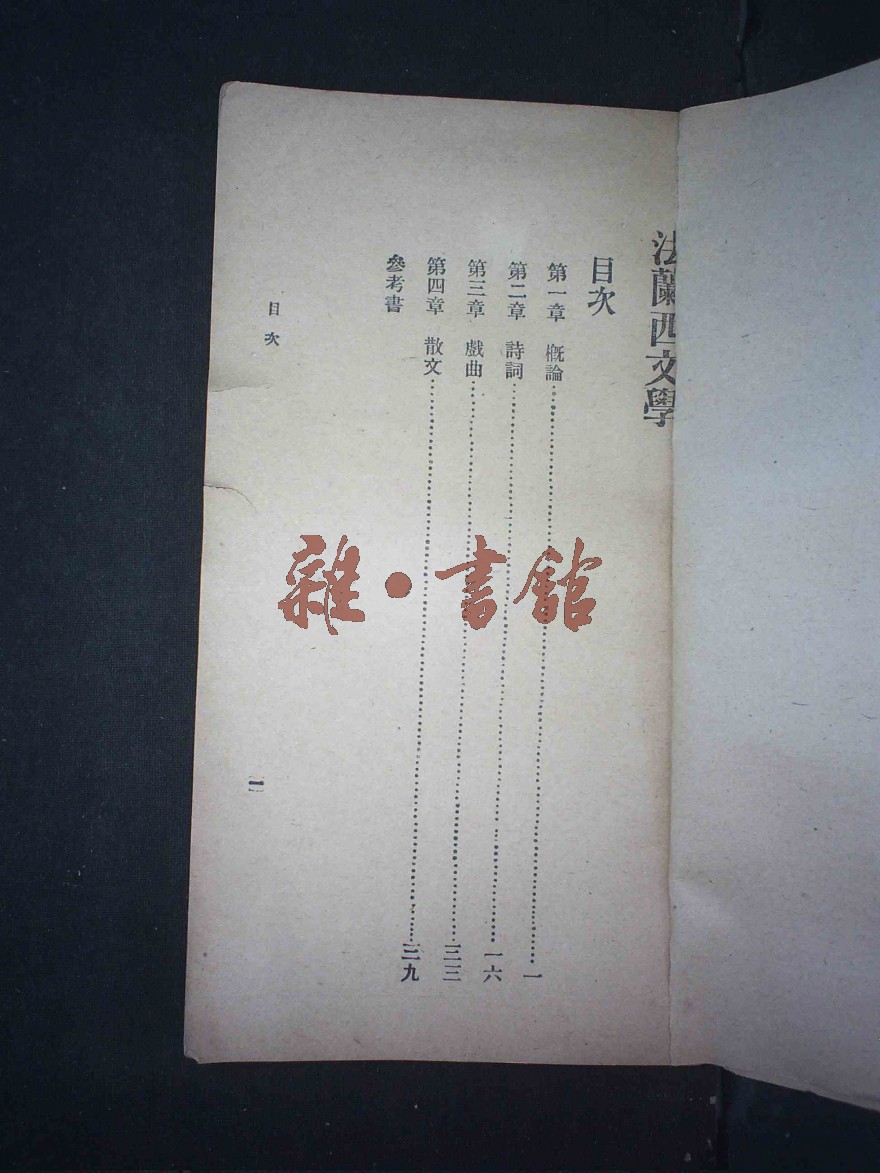 法蘭西文學
目次
第一章 概論……一
第二章 詩詞……一六
第三章 戲曲……三三
第四章 散文……三九
參考書
目次
雜·書館